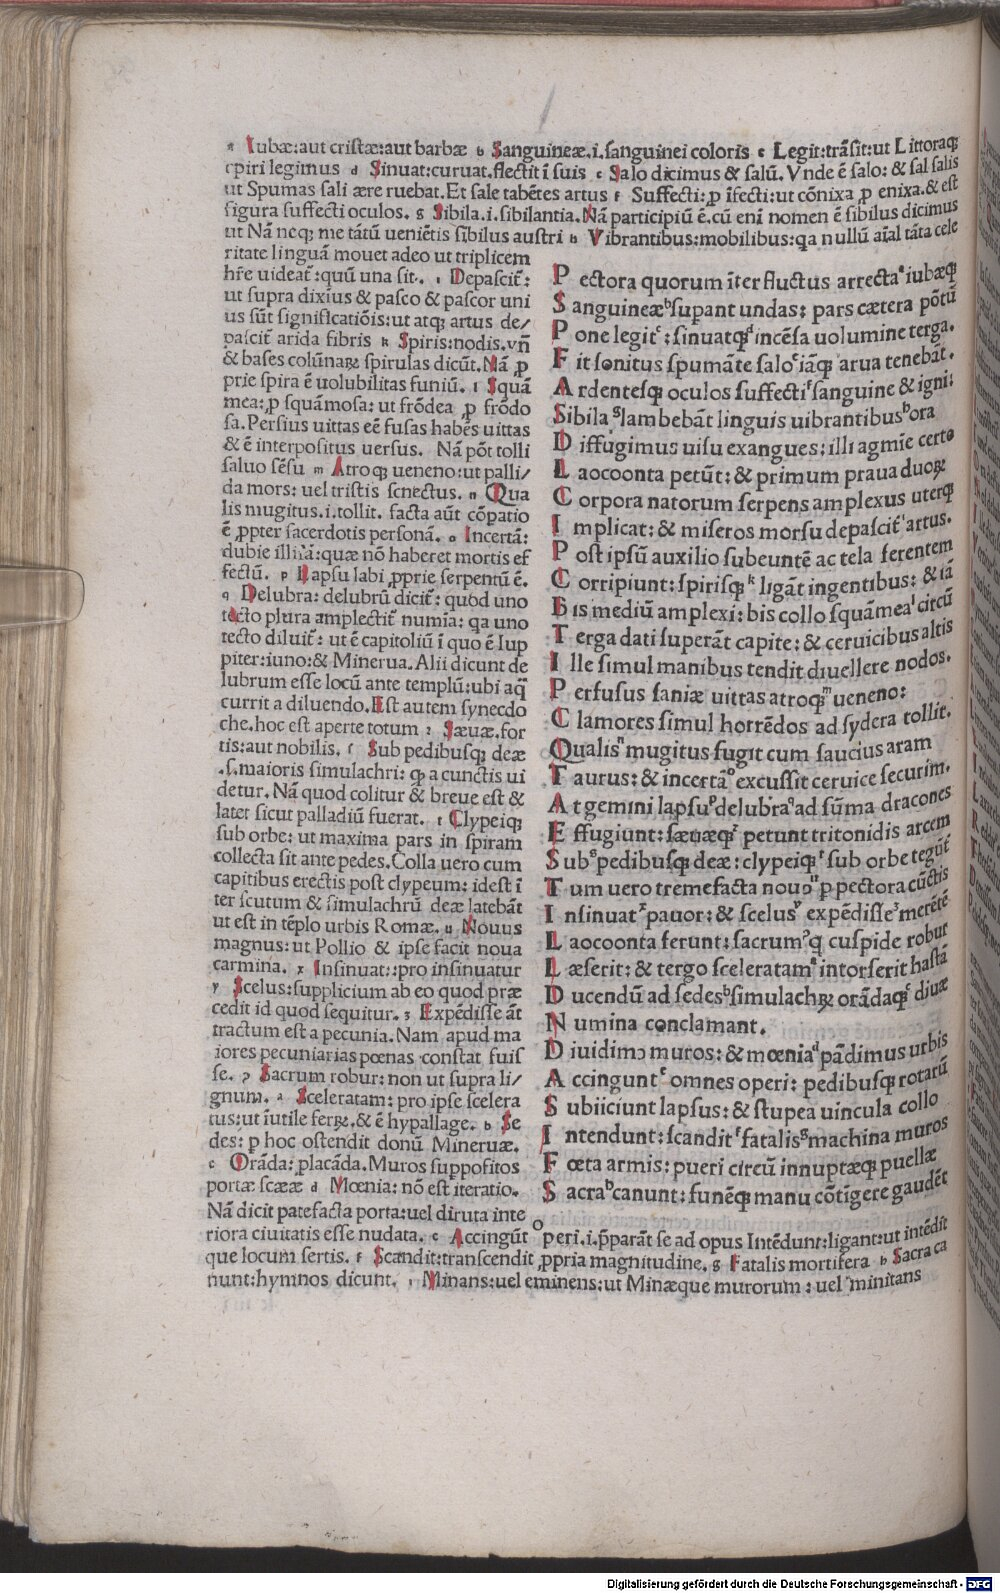 a Iubæ:aut cristæ:aut barbæ b Sanguineæ.i.sanguinei coloris c Legit:trãsit:ut Littoraqꝫ
epiri legimus d Sinuat:curuat.flectit ĩ suis e Salo dicimus & salũ. Vnde ẽ salo: & sal salis
ut Spumas sali ære ruebat.Et sale tabẽtes artus f Suffecti:ꝓ ĩfecti:ut cõnixa ꝓ enixa.& est
figura suffecti oculos. g Sibila.i.sibilantia.Nã participiũ ẽ.cũ eni nomen ẽ sibilus dicimus
ut Nã neqꝫ me tãtũ ueniẽtis sibilus austri h Vibrantibus:mobilibus:qa nullũ aĩal tãta cele
ritate linguã mouet adeo ut triplicem
hr̃e uideat̃:quũ una sit. i Depascit̃:
ut supra diximus & pasco & pascor uni
us sũt significatiõis:ut atqꝫ artus de/
pascit̃ arida fibris k Spiris:nodis.vñ
& bases colũnaꝝ spirulas dicũt.Nã ꝓ
prie spira ẽ uolubilitas funiũ. l Squã
mea:ꝓ squãmosa: ut frõdea ꝓ frõdo
sa.Persius uittas eẽ fusas habẽs uittas
& ẽ interpositus uersus. Nã põt tolli
saluo sẽsu m Atroqꝫ ueneno:ut palli/
da mors: uel tristis senectus. n Qua
lis mugitus.i.tollit. facta aũt cõpatio
ẽ ꝓpter sacerdotis personã. o Incertã:
dubie illisã:quæ nõ haberet mortis ef
fectũ. p Lapsu labi ꝓprie serpentũ ẽ.
q Delubra: delubrũ dicit̃: quod uno
tecto plura amplectit̃ numia: qa uno
tecto diluit̃: ut ẽ capitoliũ ĩ quo ẽ Iup
piter:iuno:& Minerua. Alii dicunt de
lubrum esse locũ ante templũ:ubi aq̃
currit a diluendo.Est autem synecdo
che.hoc est aperte totum r Sæuæ.for
tis:aut nobilis. s Sub pedibusqꝫ deæ
.s.maioris simulachri: qꝫ a cunctis ui
detur. Nã quod colitur & breue est &
latet sicut palladiũ fuerat. t Clypeiqꝫ
sub orbe: ut maxima pars in spiram
collecta sit ante pedes.Colla uero cum
capitibus erectis post clypeum: idest ĩ
ter scutum & simulachrũ deæ latebãt
ut est in tẽplo urbis Romæ. u Nouus
magnus: ut Pollio & ipse facit noua
carmina. x Insinuat::pro insinuatur
y Scelus:supplicium ab eo quod præ
cedit id quod sequitur. z Expẽdisse ãt
tractum est a pecunia. Nam apud ma
iores pecuniarias pœnas constat fuis
se. ꝛ Sacrum robur: non ut supra li/
gnum. a Sceleratam: pro ipse scelera
tus:ut iutile ferꝝ.& ẽ hypallage. b Se
des: ꝑ hoc ostendit donũ Mineruæ.
c Orãda: placãda.Muros suppositos
portæ scææ d Mœnia: nõ est iteratio.
Nã dicit patefacta porta:uel diruta inte
riora ciuitatis esse nudata. e Accingũt operi.i.p̃parãt se ad opus Intẽdunt:ligant:ut intẽdit
que locum sertis. f Scandit:transcendit ꝓpria magnitudine. g Fatalis mortifera h Sacra ca
nunt:hymnos dicunt. i Minans:uel eminens:ut Minæque murorum : uel minitans
P ectora quorum ĩter fluctus arrecta a iubæqꝫ
S anguineæ b supant undas: pars cætera põtũ
P one legit c : sinuatqꝫ d incẽsa uolumine terga.
F it sonitus spumãte salo e iãqꝫ arua tenebãt.
A rdentesqꝫ oculos suffecti f sanguine & igni:
Sibila g lambebãt linguis uibrantibus h ora
D iffugimus uisu exangues: illi agmie certo
L aocoonta petũt: & primum praua duoꝝ
C orpora natorum serpens amplexus uterqꝫ
I mplicat: & miseros morsu depascit̃ i artus.
P ost ipsũ auxilio subeuntẽ ac tela ferentem
C orripiunt: spirisqꝫ k ligãt ingentibus: & iã
B is mediũ amplexi: bis collo squãmea l circũ
T erga dati superãt capite: & ceruicibus altis
I lle simul manibus tendit diuellere nodos.
P erfusus saniæ uittas atroqꝫ m ueneno:
C lamores simul horrẽdos ad sydera tollit.
Qualis n mugitus fugit cum saucius aram
T aurus: & incertã o excussit ceruice securim.
A t gemini lapsu p delubra q ad sũma dracones
E ffugiunt: sæuæqꝫ r petunt tritonidis arcem
S ub s pedibusqꝫ deæ: clypeiqꝫ t sub orbe tegũt̃
T um uero tremefacta nouꝰ u ꝑ pectora cũctis
I nsinuat x pauor: & scelus y expẽdisse z merẽtẽ
L aocoonta ferunt: sacrum ꝛ q cuspide robur
L æserit: & tergo sceleratam a intorserit hastã
D ucendũ ad sedes b simulachꝝ orãdaqꝫ c diuæ
N umina conclamant.
D iuidimꝰ muros: & mœnia d pãdimus urbis
A ccingunt e omnes operi: pedibusqꝫ rotarũ
S ubiiciunt lapsus: & stupea uincula collo
I ntendunt: scandit f fatalis g machina muros
F œta armis: pueri circũ innuptæqꝫ puellæ
S acra h canunt: funẽqꝫ manu cõtigere gaudẽt
Digitalisierung gefördert durch die Deutsche Forschungsgemeinschaft - DFG